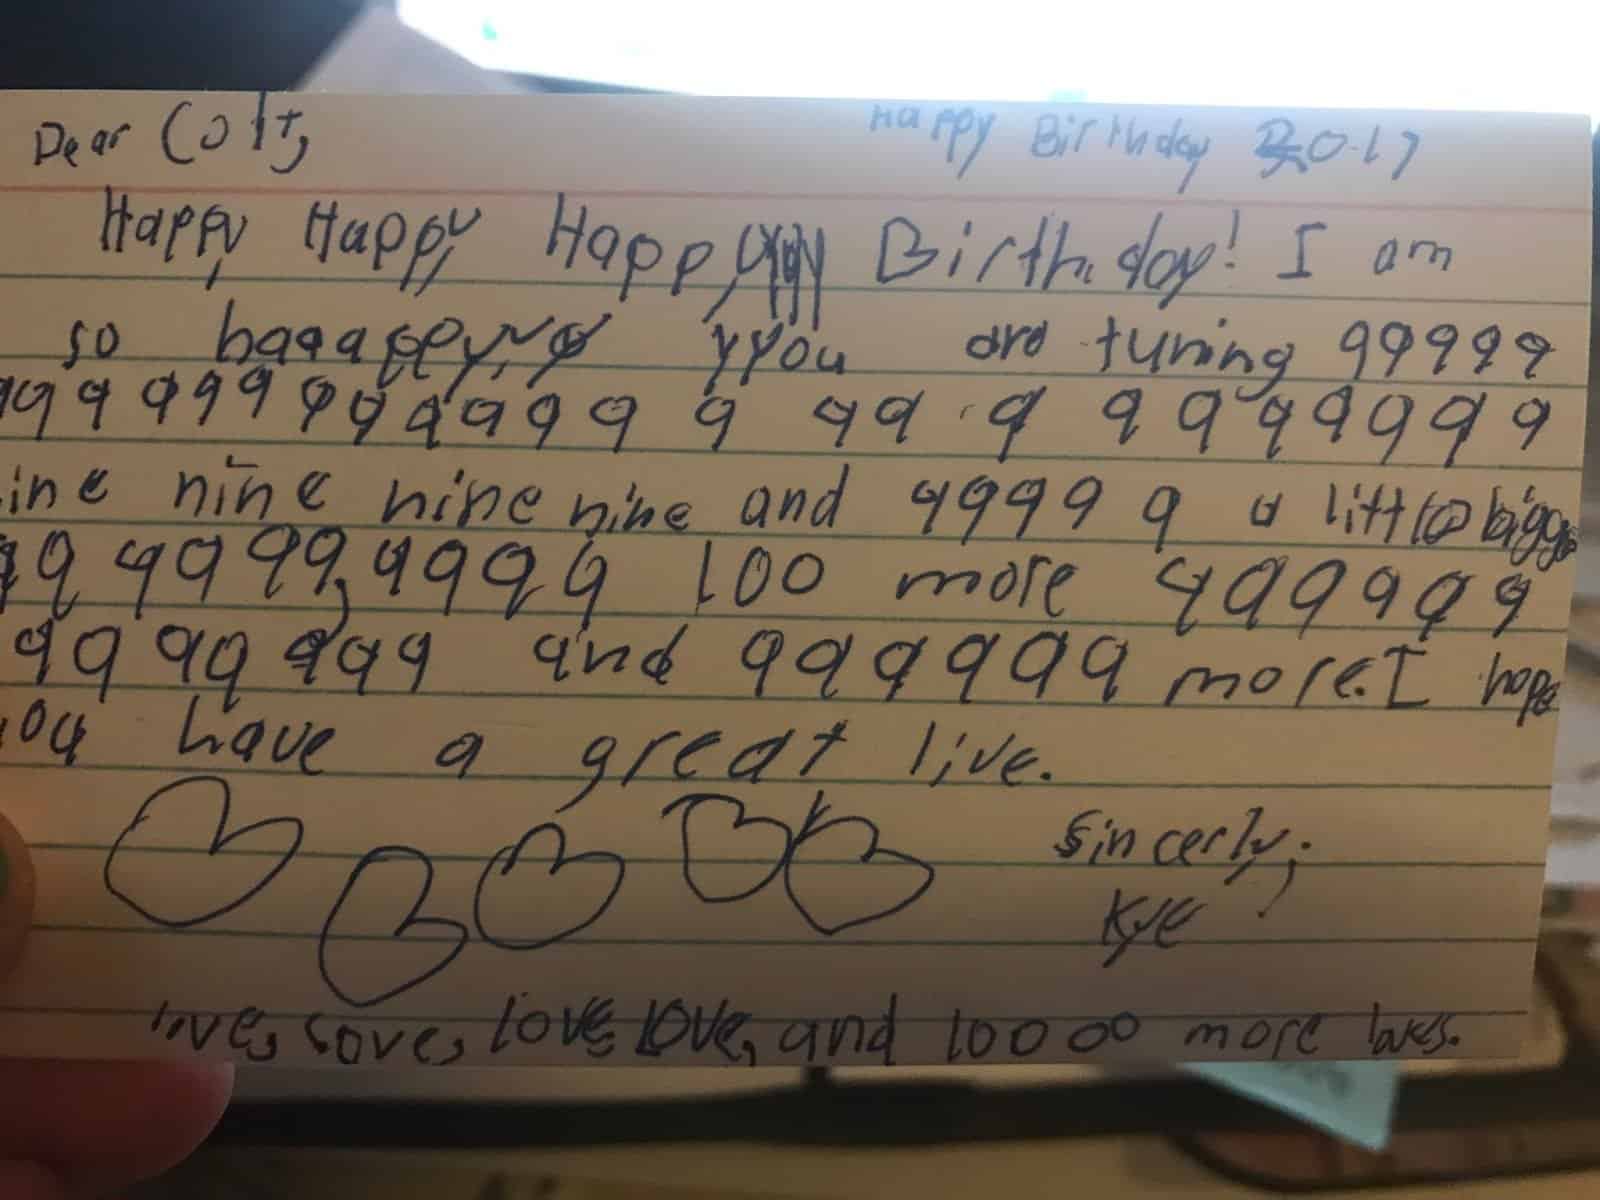 Dear Colt,
Happy Birthday 2017
Happy, Happy, Happyyyyy Birthday! I am
so haaappy, yyou are turing 99999
99 9 9 9 9 9 9 9 9 9 9 9 9 9 9 9 9 9 9 9 9 9 9
ine nine nine nine and 9999 9 a little bigge
99 9999,9999 100 more 999999
99 99 999 and 999999 more. I hope
you have a great live.
Sincerly,
Kye
love, love, love, love, and 10000 more loves.